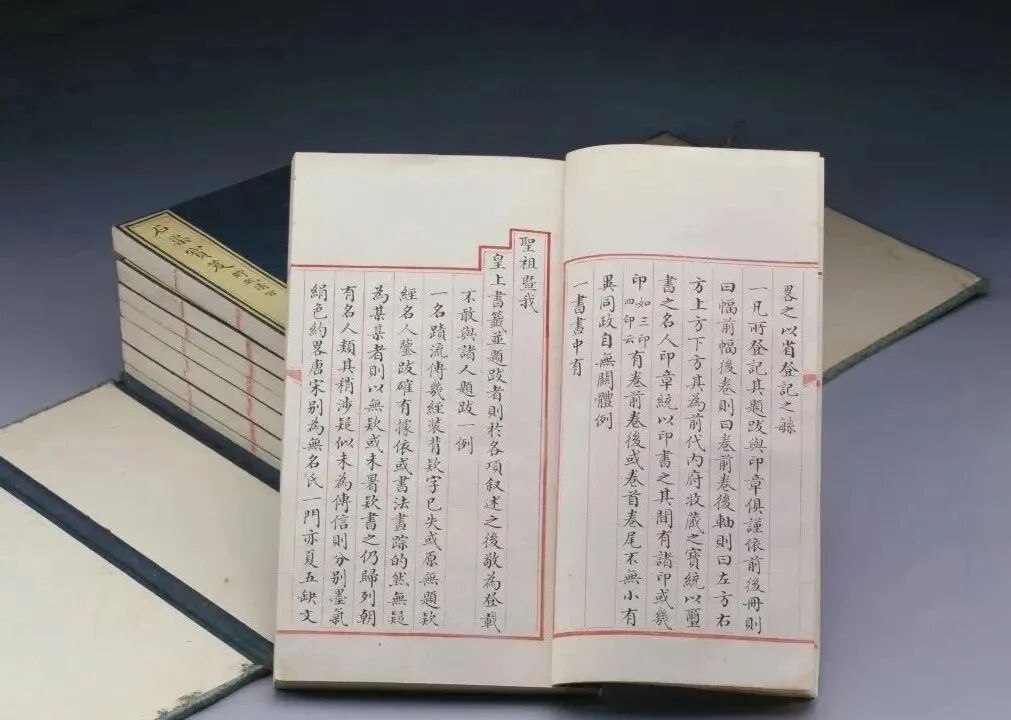 畧之以省登記之繇
一凡所登記其題跋與印章俱謹依前後冊則
曰幅前幅後卷則曰卷前卷後軸則曰左方右
方上方下方其為前代内府收藏之寶統以璽
書之名人印章統以印書之其間有諸印或幾
印如三印四印云有卷前卷後或卷首卷尾不無小有
異同政自無關體例
一書書中有
聖祖暨我
皇上書籤並題跋者則於各項叙述之後敬為登載
不敢與諸人題跋一例
一名蹟流傳幾經裝背欵字已失或原無題欵
經名人鑒跋確有據依或書法畫踪的然無疑
為某某者則以無欵或未署欵書之仍歸列朝
有名人類其稍涉疑似未為傳信則分别墨氣
絹色約畧唐宋别為無名氏一門亦夏五缺文
石渠寶笈